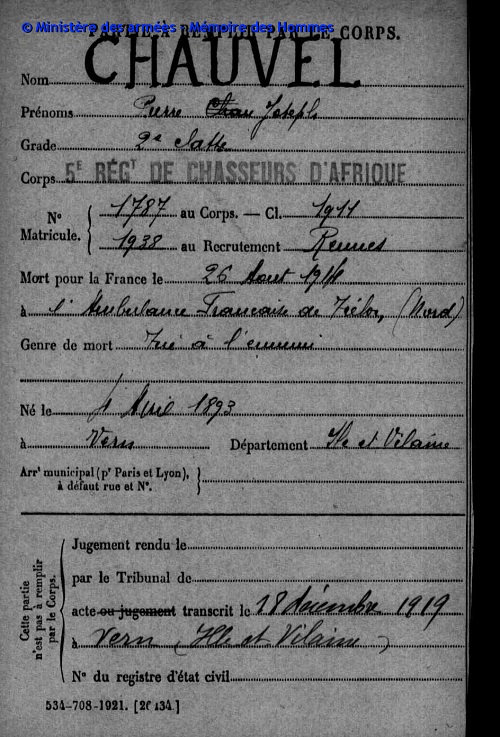 © Ministère des armées - Mémoire des Hommes
PARTIE À REMPLIR PAR LE CORPS.
Nom CHAUVEL
Prénoms Pierre Joseph
Grade 2e classe
Corps 5E RÉGT DE CHASSEURS D'AFRIQUE
N° Matricule. { 1787 au Corps. — Cl. 1911
1938 au Recrutement Rennes
Mort pour la France le 26 Aout 1914
à l'Ambulance Francaise de Trélon, (Nord)
Genre de mort Tué à l'ennemi
Né le 4 Avril 1893
à Vern Département Ille et Vilaine
Arrt municipal (pr Paris et Lyon), à défaut rue et N°. }
Cette partie n'est pas à remplir par le Corps.
Jugement rendu le
par le Tribunal de
acte ou jugement transcrit le 18 décembre 1919
à Vern (Ille et Vilaine)
N° du registre d'état civil
534-708-1921. [26434.]